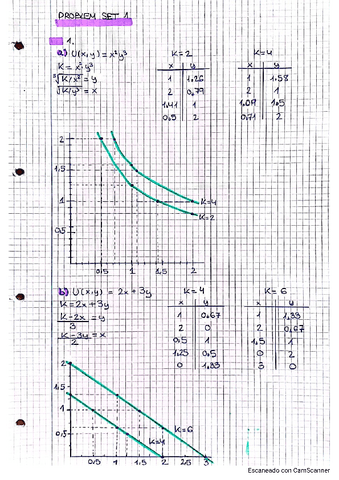 PROBLEM SET 1.
1.
a) U(x,y) = x²y³
K = x²y³
³√K/x² = y
√K/y³ = x
K=2
x y
1 1.26
2 0,79
1,41 1
0,5 2
K=4
x y
1 1.58
2 1
1,09 1,5
0,71 2
2
1,5
1
0,5
K=4
K=2
0,5 1 1,5 2
b) U(x,y) = 2x + 3y
K = 2x + 3y
K-2x/3 = y
K-3y/2 = x
K=4
x y
1 0,67
2 0
0,5 1
1,25 0,5
0 1,33
K=6
x y
1 1,33
2 0,67
1,5 1
0 2
3 0
2
1,5
1
0,5
K=6
K=4
0,5 1 1,5 2 2,5 3
Escaneado con CamScanner